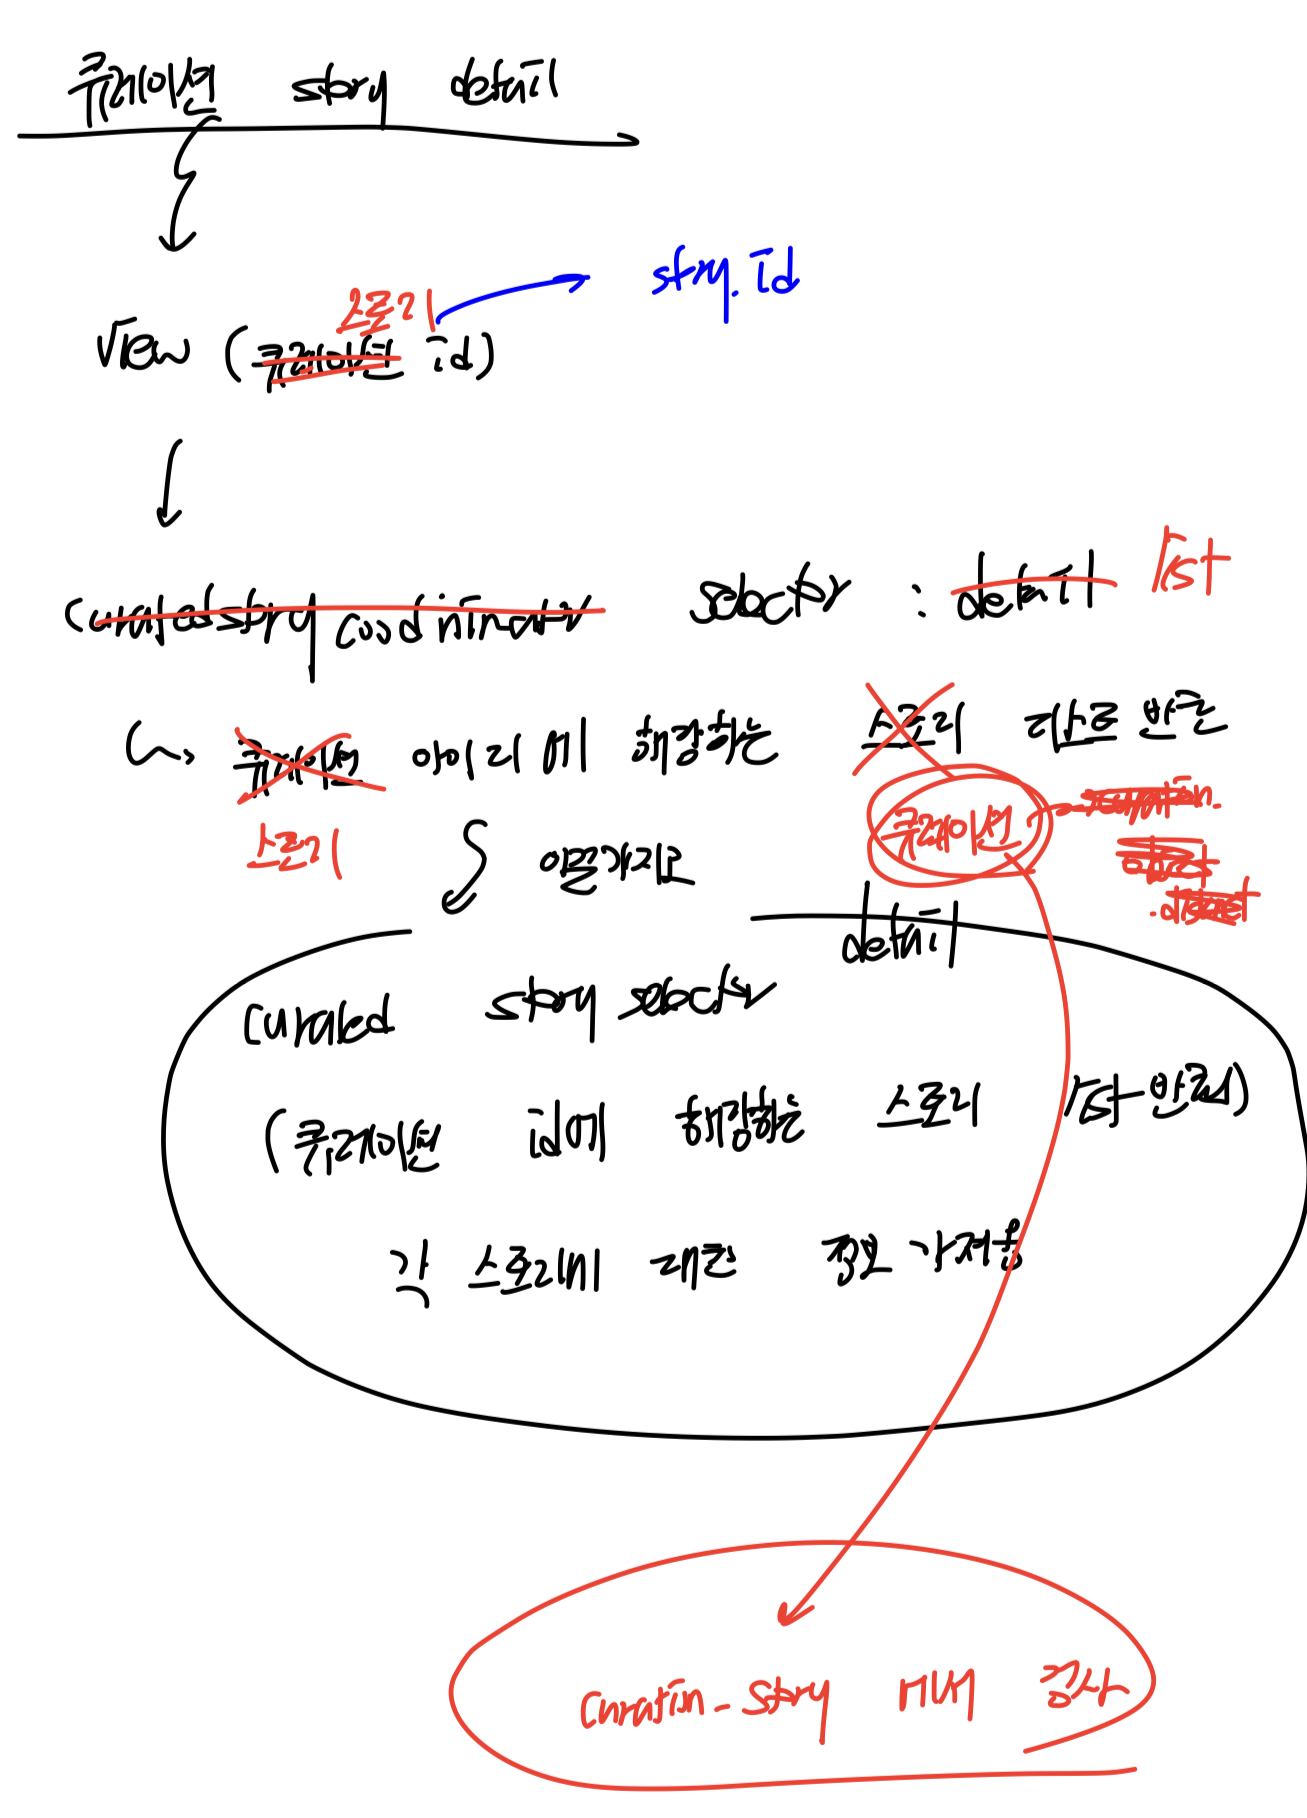 큐레이션 story detail
story.id
스토리
View (큐레이션 id)
list
curatedstory coordinator selector : detail
큐레이션 아이디에 해당하는 스토리
스토리 이걸가지고 큐레이션
detail
curated story selector
(큐레이션 id에 해당하는 스토리 list 반환)
각 스토리에 대한 정보 가져옴
curation_story